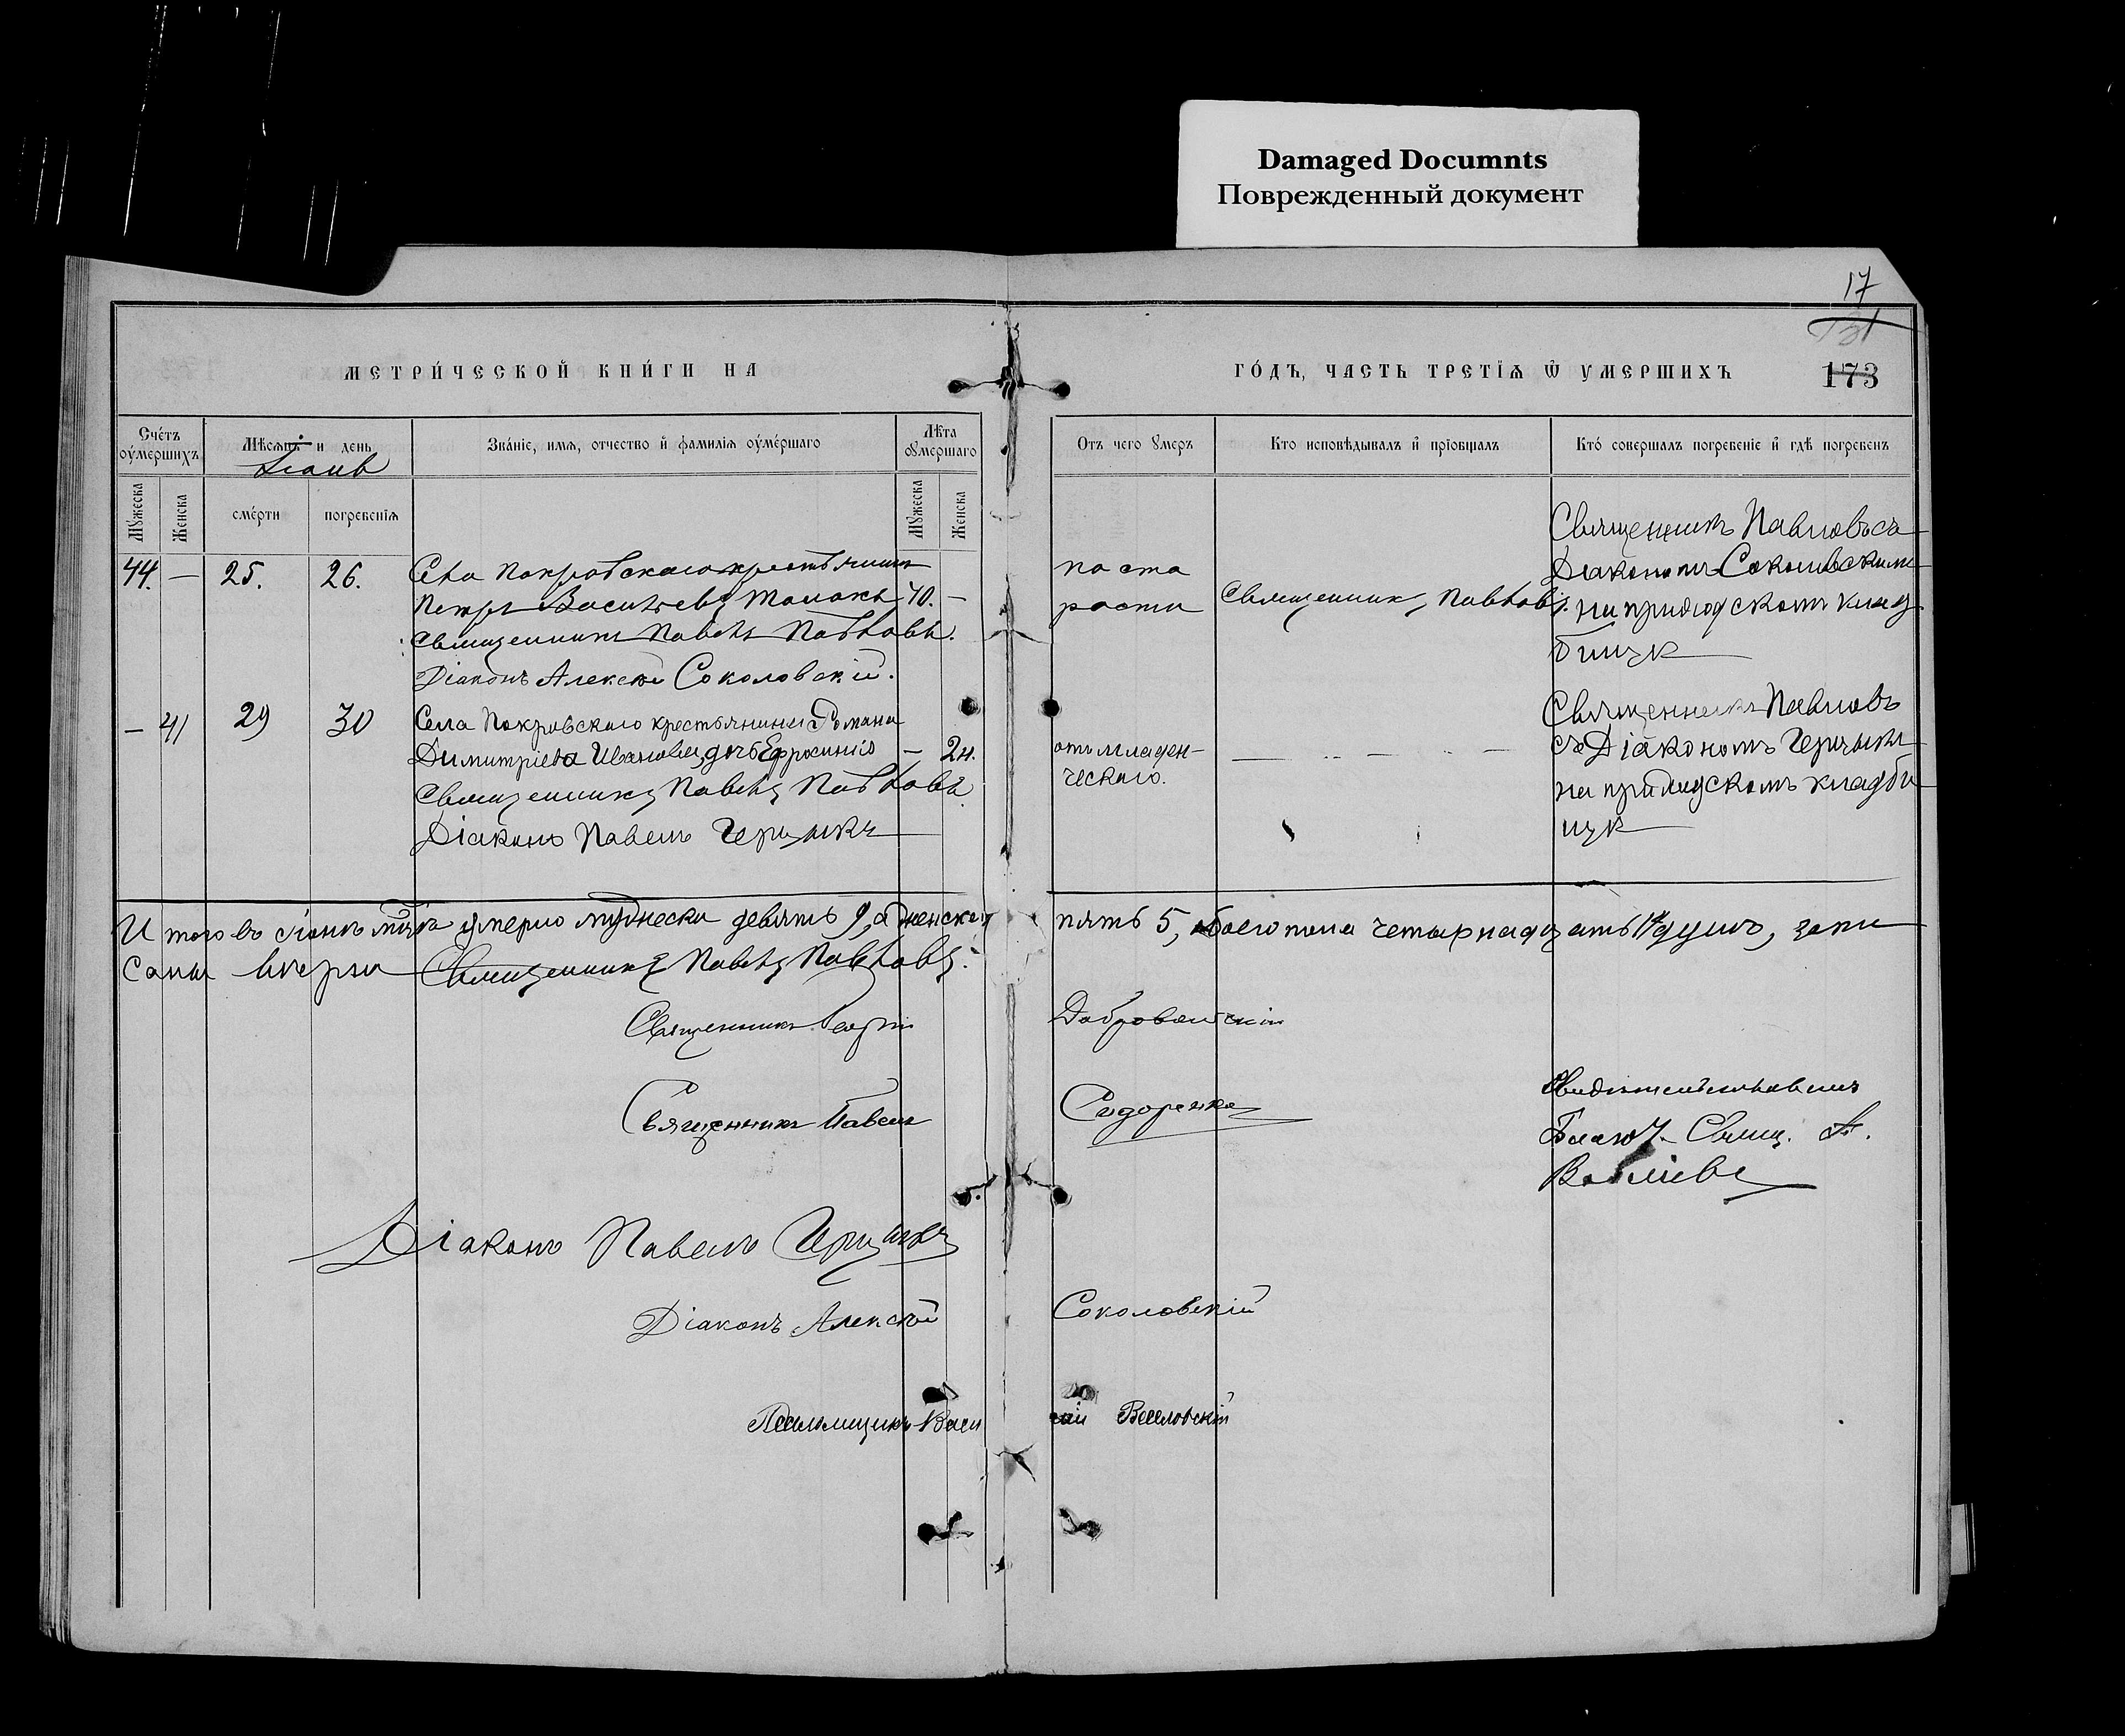 Damaged Documnts
Поврежденный документ
17
173
МЕТРИ́ЧЕСКОЙ КНИ́ГИ НА
ГО́ДЪ, ЧАСТЬ ТРЕТІѦ Ѿ УМЕРШИХЪ
Сче́тъ оу҆ме́ршихъ
Мѣсяцъ и день
Іюнь
Зва́ніе, имѧ, отчество и҆ фамиліѧ оу҆ме́ршаго
Лѣ́та оу҆мершаго
Отъ чего ᲂумеръ
Кто исповѣдывалъ и҆ прїобщалъ
Кто́ совершалъ погребеніе и҆ гдѣ погребенъ
Мꙋжеска
Женска
сме́рти
погребенїѧ
Мꙋжеска
Женска
44. — 25. 26.
Села Покровскаго крестьянинъ
Петръ Васильевъ 70. —
Священникъ Павелъ Павловъ.
Діаконъ Алексѣй Соколовскій.
по ста
рости
Священникъ Павловъ.
Священникъ Павловъ съ
Діакономъ Соколовскимъ
на приходскомъ клад
бищѣ
— 41 29 30
Села Покровскаго крестьянина Романа
Димитріева Иванова дочь Ефросинія — 2 н.
Священникъ Павелъ Павловъ.
Діаконъ Павелъ
отъ младен-
ческаго.
Священникъ Павловъ
съ Діакономъ
на приходскомъ кладби
щѣ
Итого въ іюнѣ м-цѣ умерло мужеска девять 9, а женска
пять 5, обоего пола четырнадцать 14 душъ, запи
саны вѣрно Священникъ Павелъ Павловъ.
Священникъ Георгій Добровольскій
Священникъ Павелъ Сидоренко
Свидѣтельствовалъ
Благоч. Свящ. А.
Діаконъ Павелъ
Діаконъ Алексѣй Соколовскій
Псаломщикъ Василій Веселовскій